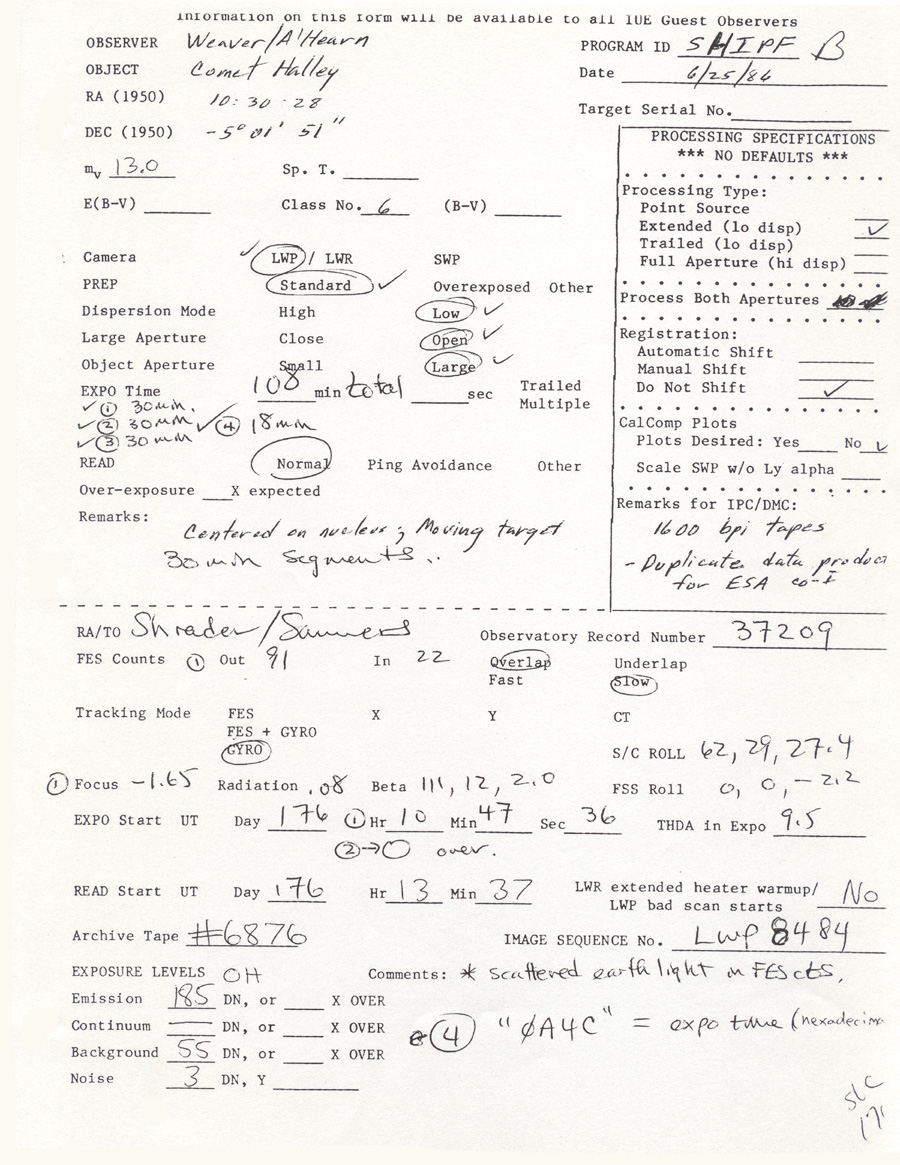 Information on this form will be available to all IUE Guest Observers
OBSERVER Weaver/A'Hearn
PROGRAM ID SHIPF B
OBJECT Comet Halley
Date 6/25/86
RA (1950) 10:30:28
Target Serial No.
DEC (1950) -5° 01' 51"
PROCESSING SPECIFICATIONS
*** NO DEFAULTS ***
mv 13.0 Sp. T.
Processing Type:
Point Source
E(B-V) Class No. 6 (B-V)
Extended (lo disp) ✓
Trailed (lo disp)
Full Aperture (hi disp)
Camera ✓ LWP / LWR SWP
PREP Standard ✓ Overexposed Other
Process Both Apertures
Dispersion Mode High Low ✓
Large Aperture Close Open ✓
Registration:
Automatic Shift
Object Aperture Small Large ✓
Manual Shift
Do Not Shift ✓
EXPO Time 108 min total sec Trailed
Multiple
✓ ① 30 min.
✓ ② 30 min ✓ ④ 18 min
✓ ③ 30 min
CalComp Plots
Plots Desired: Yes No ✓
READ Normal Ping Avoidance Other
Scale SWP w/o Ly alpha
Over-exposure X expected
Remarks:
Centered on nucleus; Moving target
30 min segments..
Remarks for IPC/DMC:
1600 bpi tapes
- Duplicate data product
for ESA co-I
RA/TO Shrader/
Observatory Record Number 37209
FES Counts ① Out 91 In 22 Overlap Underlap
Fast Slow
Tracking Mode FES X Y CT
FES + GYRO
GYRO
S/C ROLL 62, 29, 27.4
① Focus -1.65 Radiation .08 Beta 111, 12, 2.0 FSS Roll 0, 0, -2.2
EXPO Start UT Day 176 ① Hr 10 Min 47 Sec 36 THDA in Expo 9.5
②→ over.
READ Start UT Day 176 Hr 13 Min 37 LWR extended heater warmup/
LWP bad scan starts No
Archive Tape #6876 IMAGE SEQUENCE No. LWP 8484
EXPOSURE LEVELS OH Comments: * scattered earthlight in FES cts.
Emission 185 DN, or X OVER
Continuum — DN, or X OVER
④ "ØA4C" = expo time (hexadecima
Background 55 DN, or X OVER
Noise 3 DN, Y